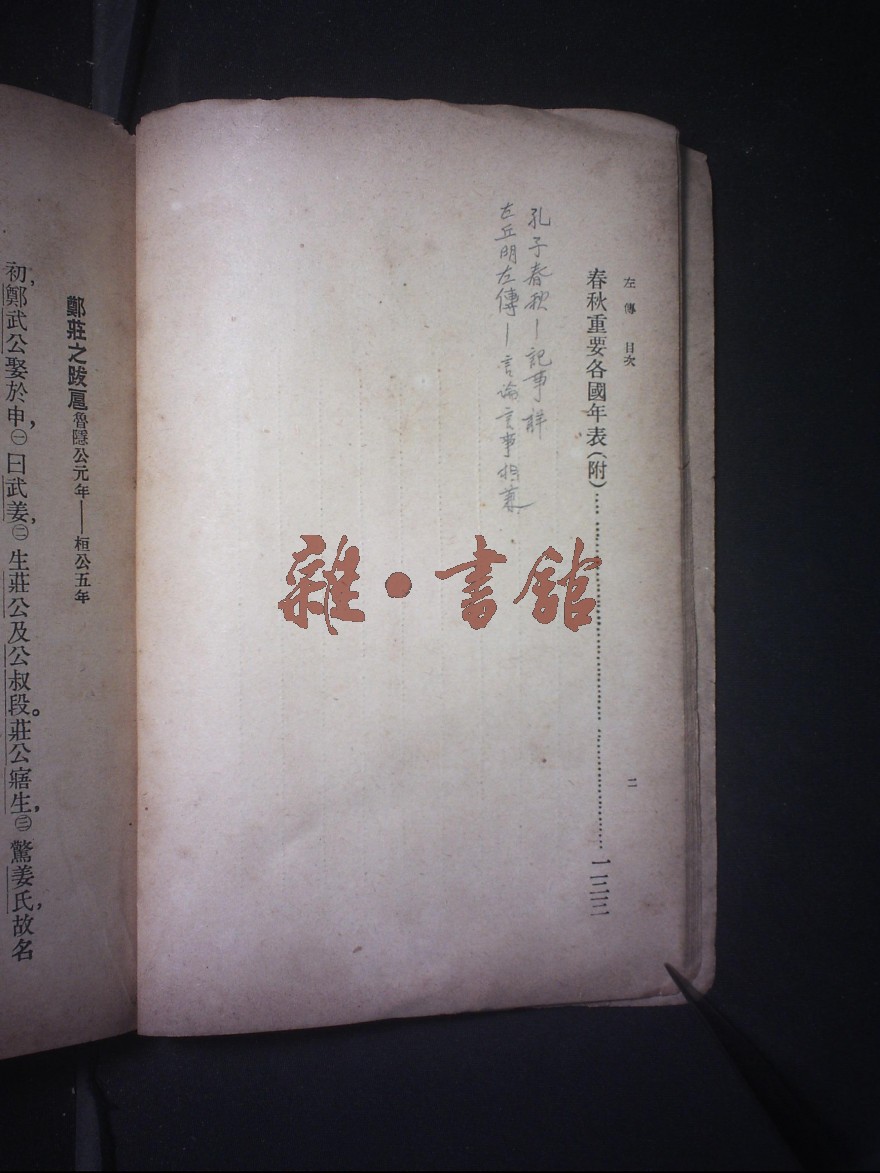 左傳 目次 二
春秋重要各國年表(附)……一二三
孔子春秋—記事詳
左丘明左傳—言論言事
雜·書館
鄭莊之跋扈 魯隱公元年——桓公五年
初,鄭武公娶於申,㊀曰武姜,㊁生莊公及公叔段。莊公寤生,㊂驚姜氏,故名